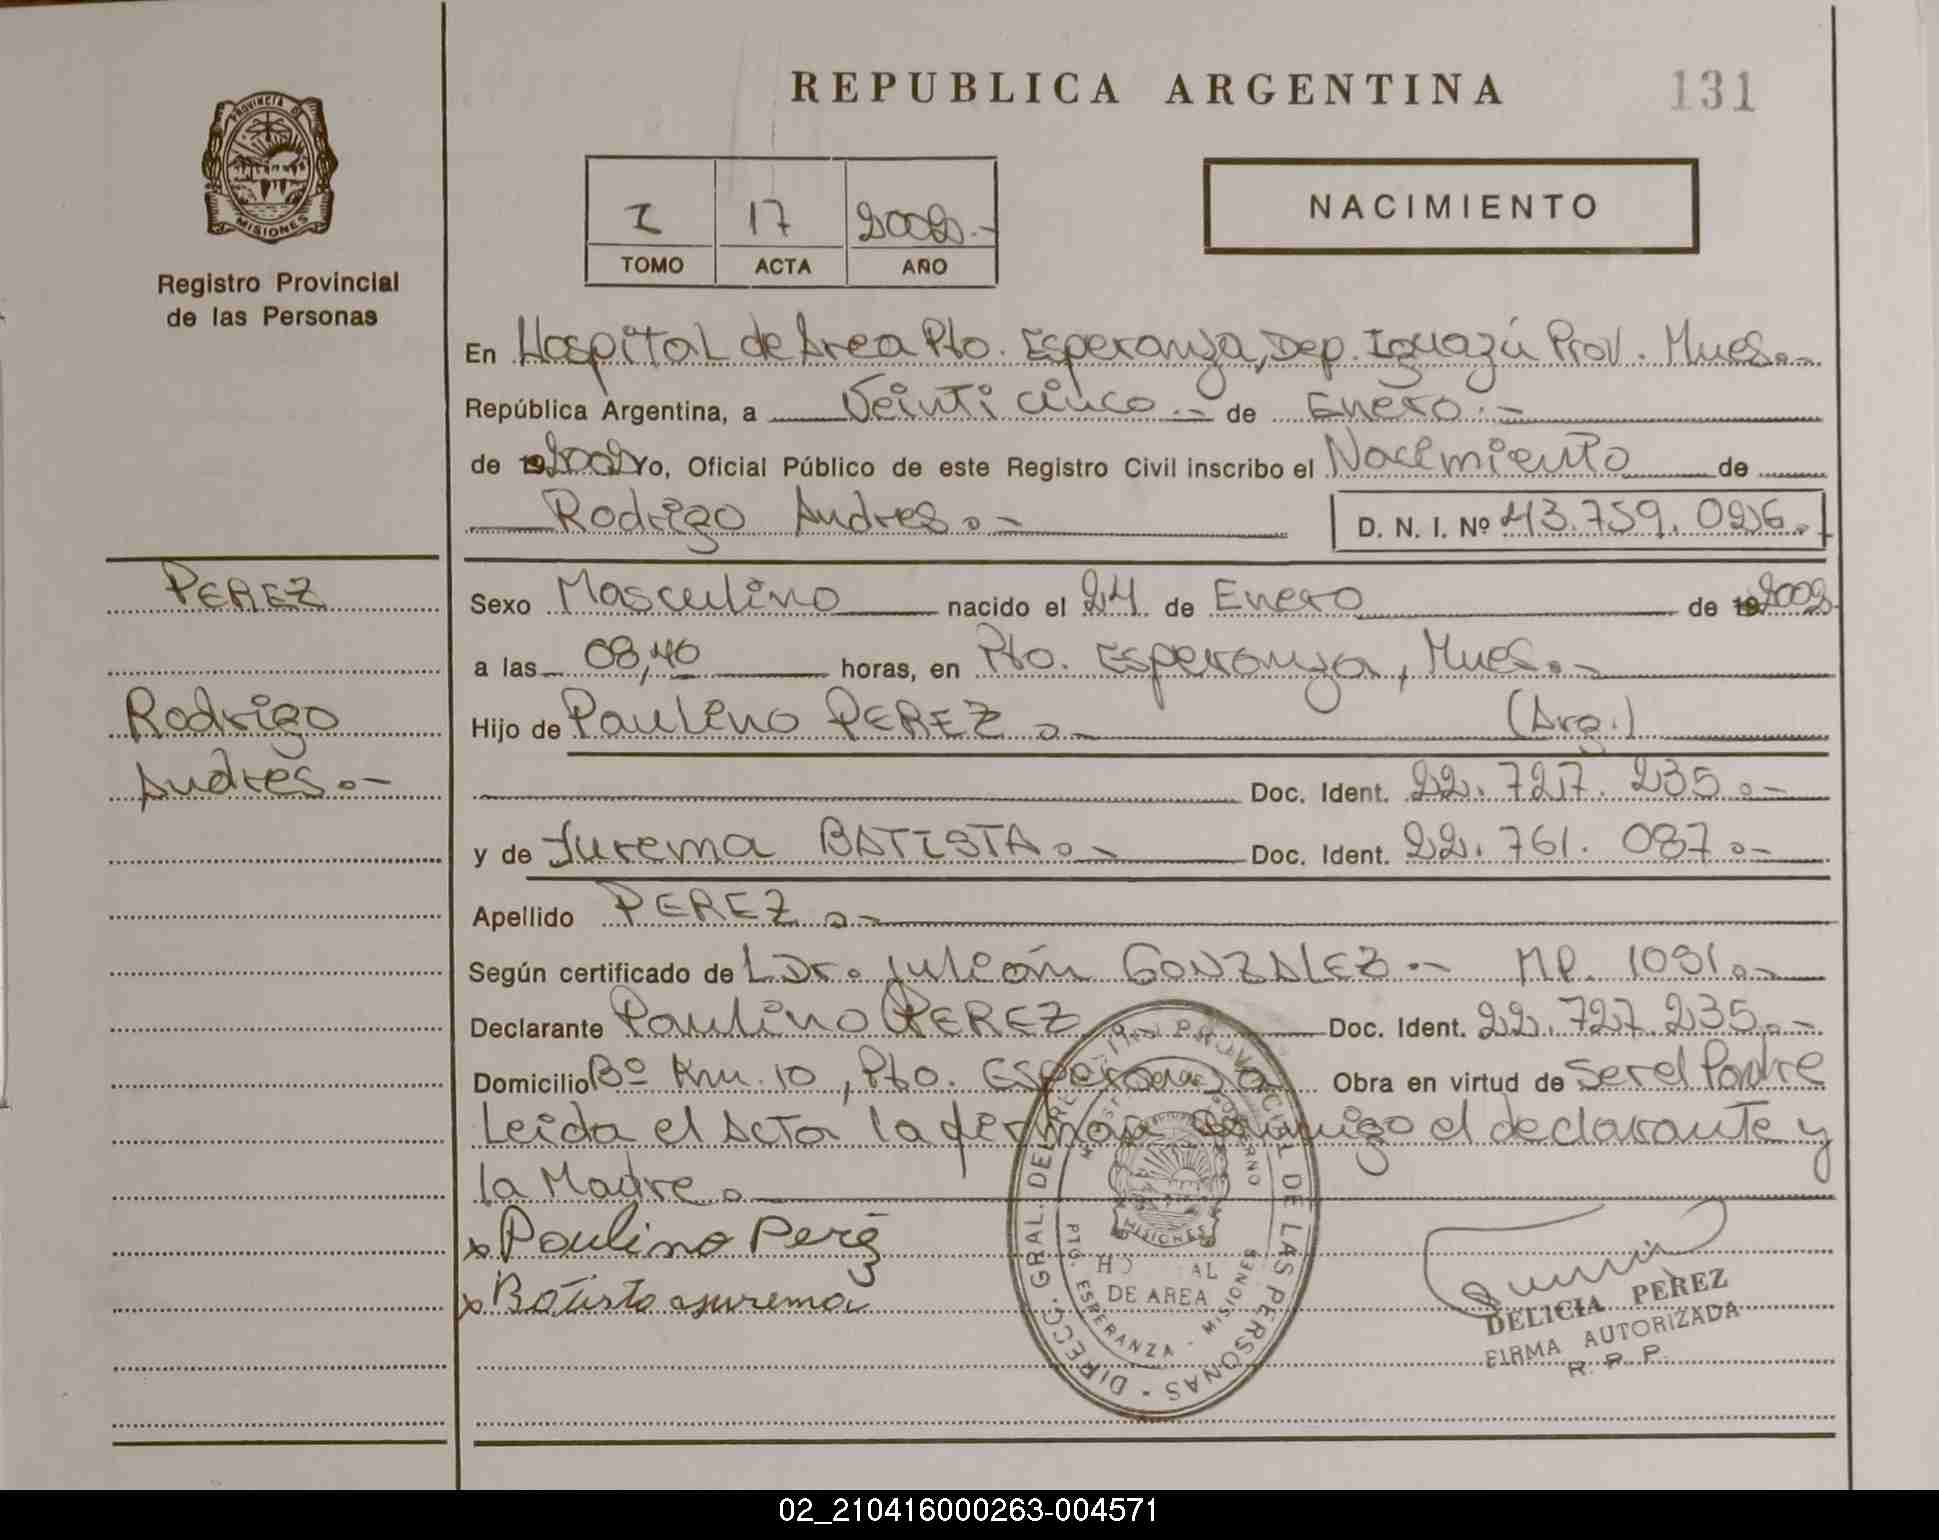 REPUBLICA ARGENTINA
131
PROVINCIA D
MISIONES
Registro Provincial
de las Personas
I 17 2002.-
TOMO ACTA AÑO
NACIMIENTO
En Hospital de Area Pto. Esperanza, Dep. Iguazú Prov. Mnes.-
República Argentina, a Veinticinco.- de Enero.-
de 2002 Yo, Oficial Público de este Registro Civil inscribo el Nacimiento de
Rodrigo Andres.- D. N. I. Nº 43.759.026.-
PEREZ
Rodrigo
Andres.-
Sexo Masculino nacido el 24 de Enero de 2002
a las 08,40 horas, en Pto. Esperanza, Mnes.-
Hijo de Paulino PEREZ.- (Arg.)
Doc. Ident. 22.727.235.-
y de Jurema BATISTA.- Doc. Ident. 22.761.087.-
Apellido PEREZ.-
Según certificado de L Dr. Julián GONZALEZ.- MP. 1091.-
Declarante Paulino PEREZ Doc. Ident. 22.727.235.-
Domicilio Bº Km. 10, Pto. Esperanza Obra en virtud de ser el Padre
Leida el Acta la firman conmigo el declarante y
la Madre.
x Paulino Perez
x Batista Jurema
DIRECC. GRAL. DEL REGISTRO PROVINCIAL DE LAS PERSONAS
GOBIERNO
MISIONES
HO AL
DE AREA
PTO. ESPERANZA - MISIONES
DELICIA PEREZ
FIRMA AUTORIZADA
R. P. P.
02_210416000263-004571